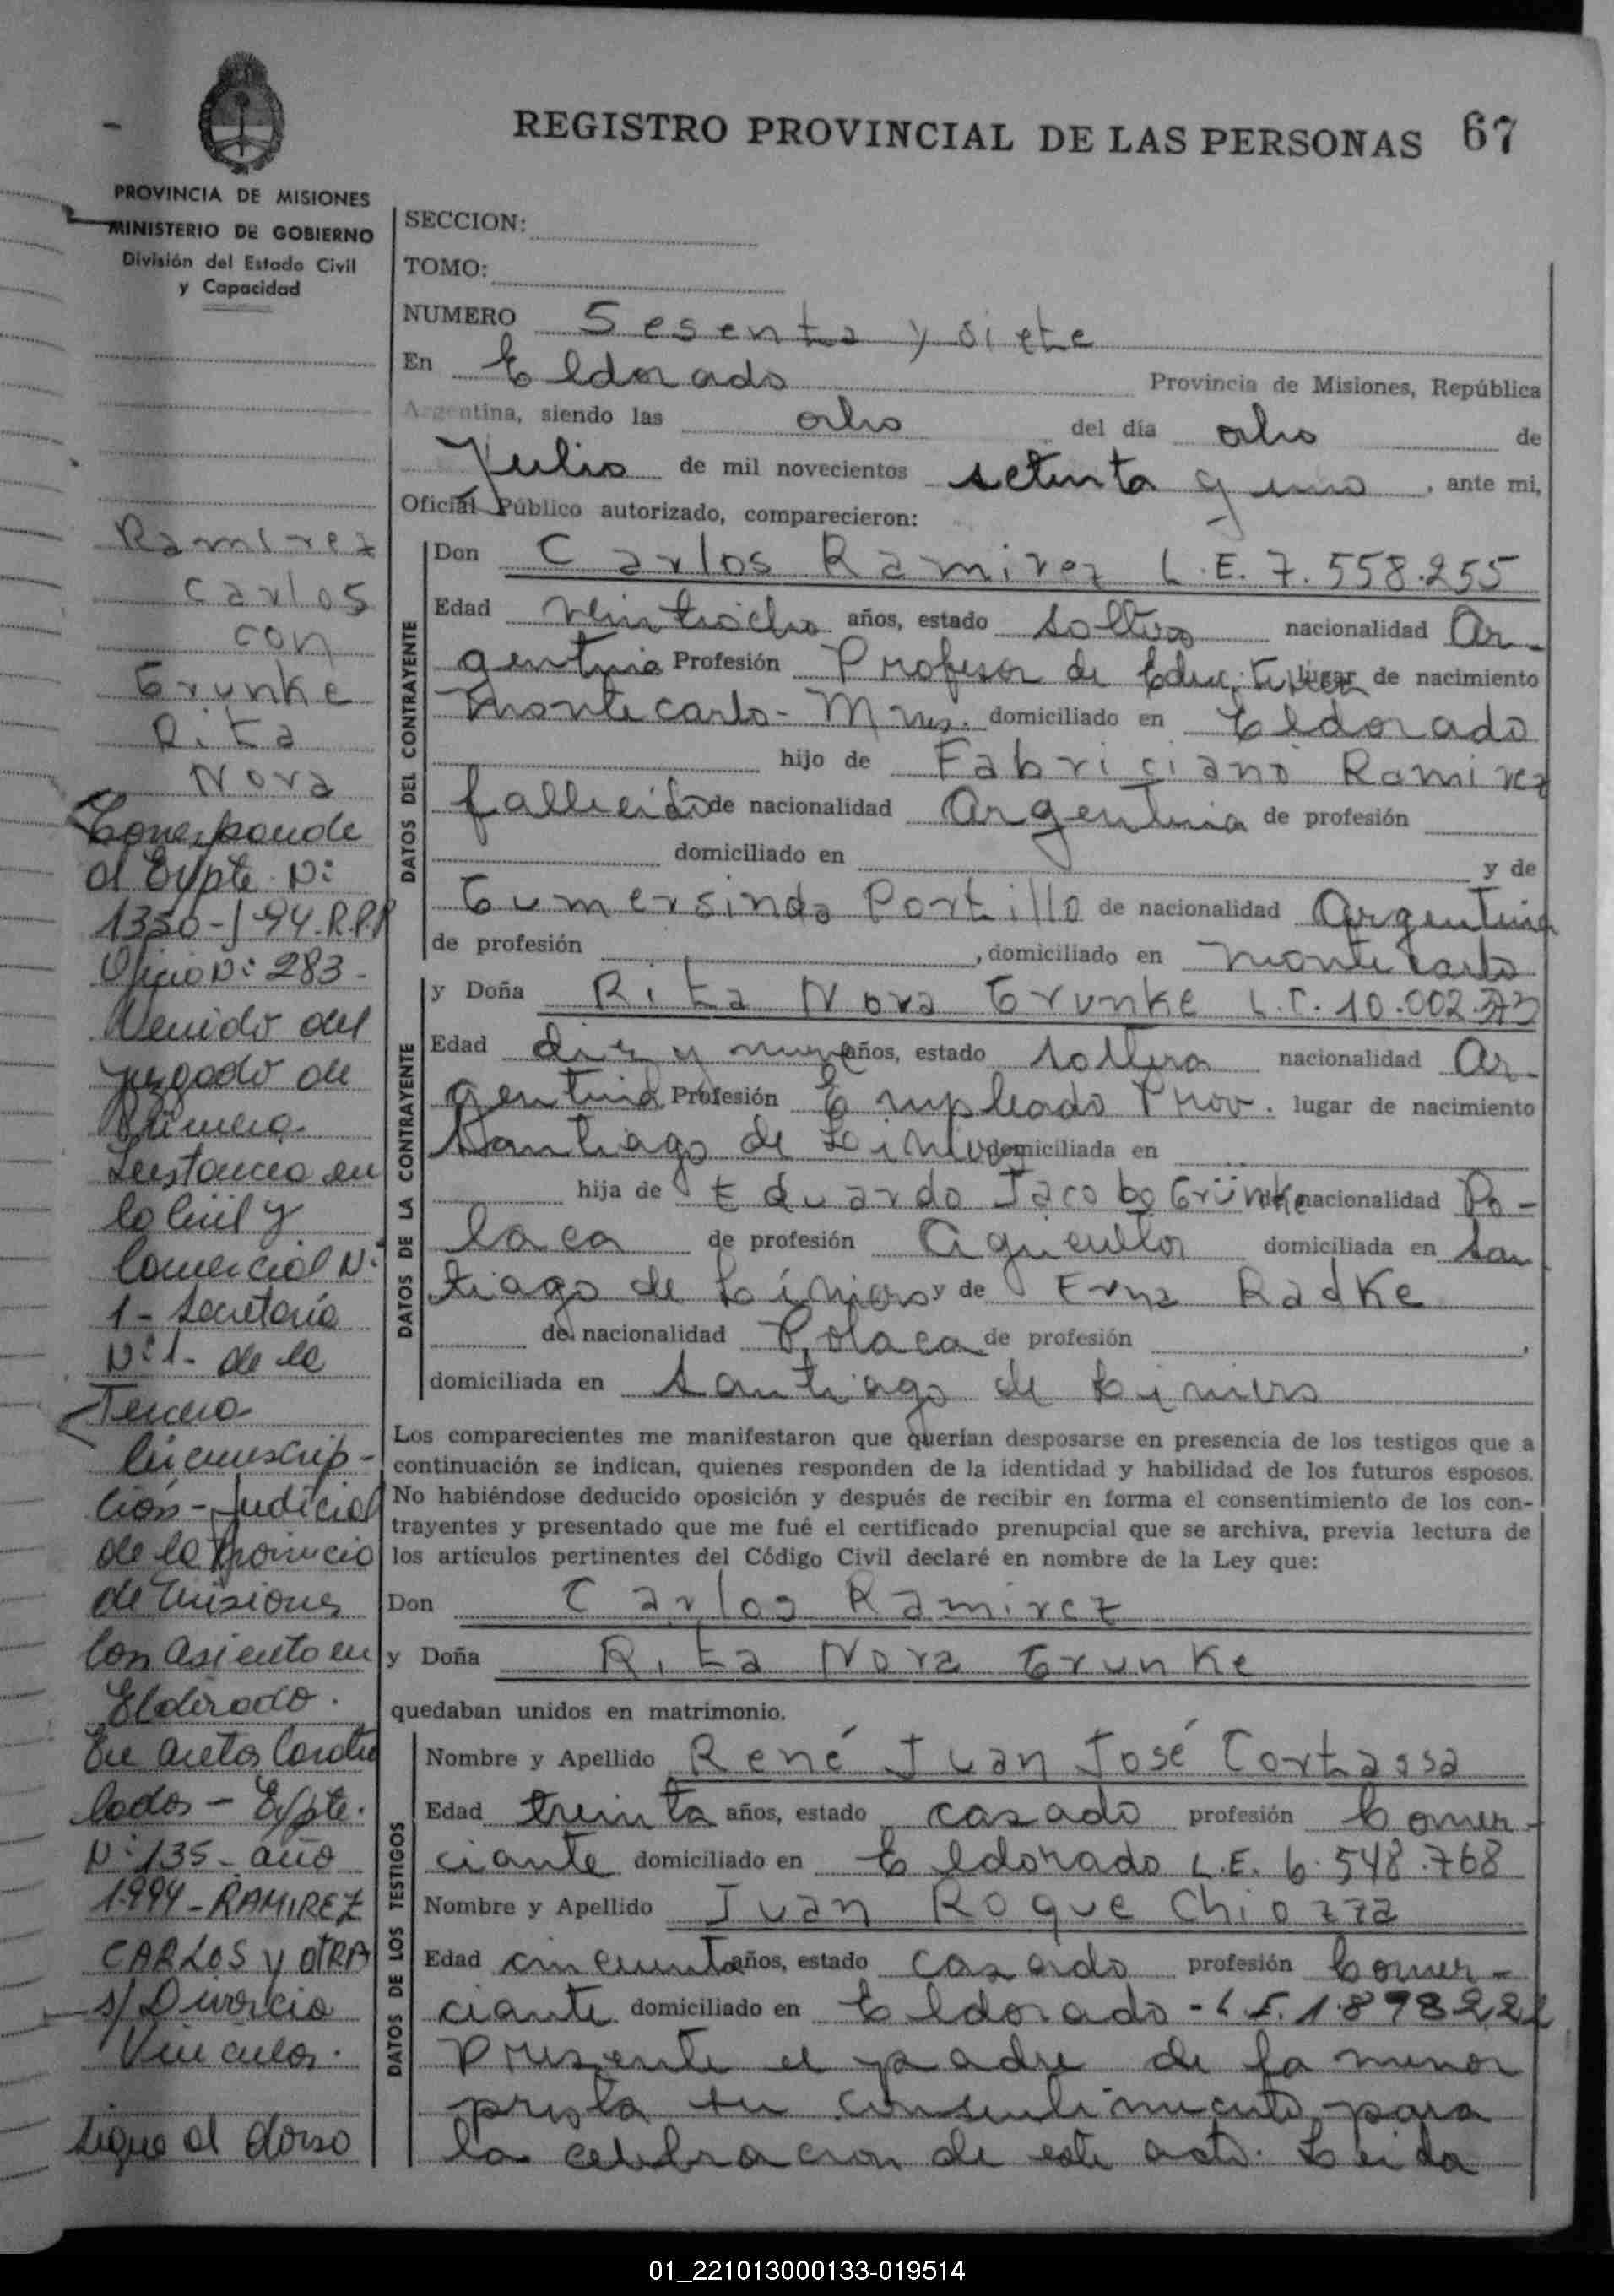 REGISTRO PROVINCIAL DE LAS PERSONAS 67
PROVINCIA DE MISIONES
MINISTERIO DE GOBIERNO
División del Estado Civil
y Capacidad
Ramirez
Carlos
con
Grunke
Rita
Nora
Corresponde
al Expte. Nº
1350-/94.R.P.P
Oficio Nº 283-
Venido del
juzgado de
Primera
Instancia en
lo Civil y
Comercial Nº
1- Secretaría
Nº 1- de la
Tercera
Circunscrip-
ción-Judicial
de la Provincia
de Misiones
Con asiento en
Eldorado.
En autos Caratu
lados - Expte.
Nº 135- año
1.994- RAMIREZ
CARLOS y OTRA
s/ Divorcio
Vincular.
Sigue al dorso
SECCION:
TOMO:
NUMERO Sesenta y siete
En Eldorado Provincia de Misiones, República
Argentina, siendo las ocho del día ocho de
Julio de mil novecientos setenta y uno, ante mi,
Oficial Público autorizado, comparecieron:
DATOS DEL CONTRAYENTE
Don Carlos Ramirez L.E. 7.558.255
Edad veintiocho años, estado soltero nacionalidad Ar-
gentina Profesión Profesor de Educ. lugar de nacimiento
Montecarlo- Mnes. domiciliado en Eldorado
hijo de Fabriciano Ramirez
fallecido de nacionalidad Argentina de profesión
domiciliado en y de
Gumersinda Portillo de nacionalidad Argentina
de profesión , domiciliado en Montecarlo
DATOS DE LA CONTRAYENTE
y Doña Rita Nora Grunke L.C. 10.002.
Edad diez y nueve años, estado soltera nacionalidad Ar-
gentina Profesión Empleado Prov. lugar de nacimiento
Santiago de Liniers domiciliada en
hija de Eduardo Jacobo Grünke de nacionalidad Po-
laca de profesión Agricultor domiciliada en San
tiago de Liniers y de Erna Radke
de nacionalidad Polaca de profesión ,
domiciliada en Santiago de Liniers
Los comparecientes me manifestaron que querían desposarse en presencia de los testigos que a
continuación se indican, quienes responden de la identidad y habilidad de los futuros esposos.
No habiéndose deducido oposición y después de recibir en forma el consentimiento de los con-
trayentes y presentado que me fué el certificado prenupcial que se archiva, previa lectura de
los artículos pertinentes del Código Civil declaré en nombre de la Ley que:
Don Carlos Ramirez
y Doña Rita Nora Grunke
quedaban unidos en matrimonio.
DATOS DE LOS TESTIGOS
Nombre y Apellido René Juan José Cortassa
Edad treinta años, estado casado profesión Comer-
ciante domiciliado en Eldorado L.E. 6.548.768
Nombre y Apellido Juan Roque Chiozza
Edad cincuenta años, estado casado profesión Comer-
ciante domiciliado en Eldorado - L.E. 1.898221
Presente el padre de la menor
presta su consentimiento para
la celebracion de este acto. Leida
01_221013000133-019514